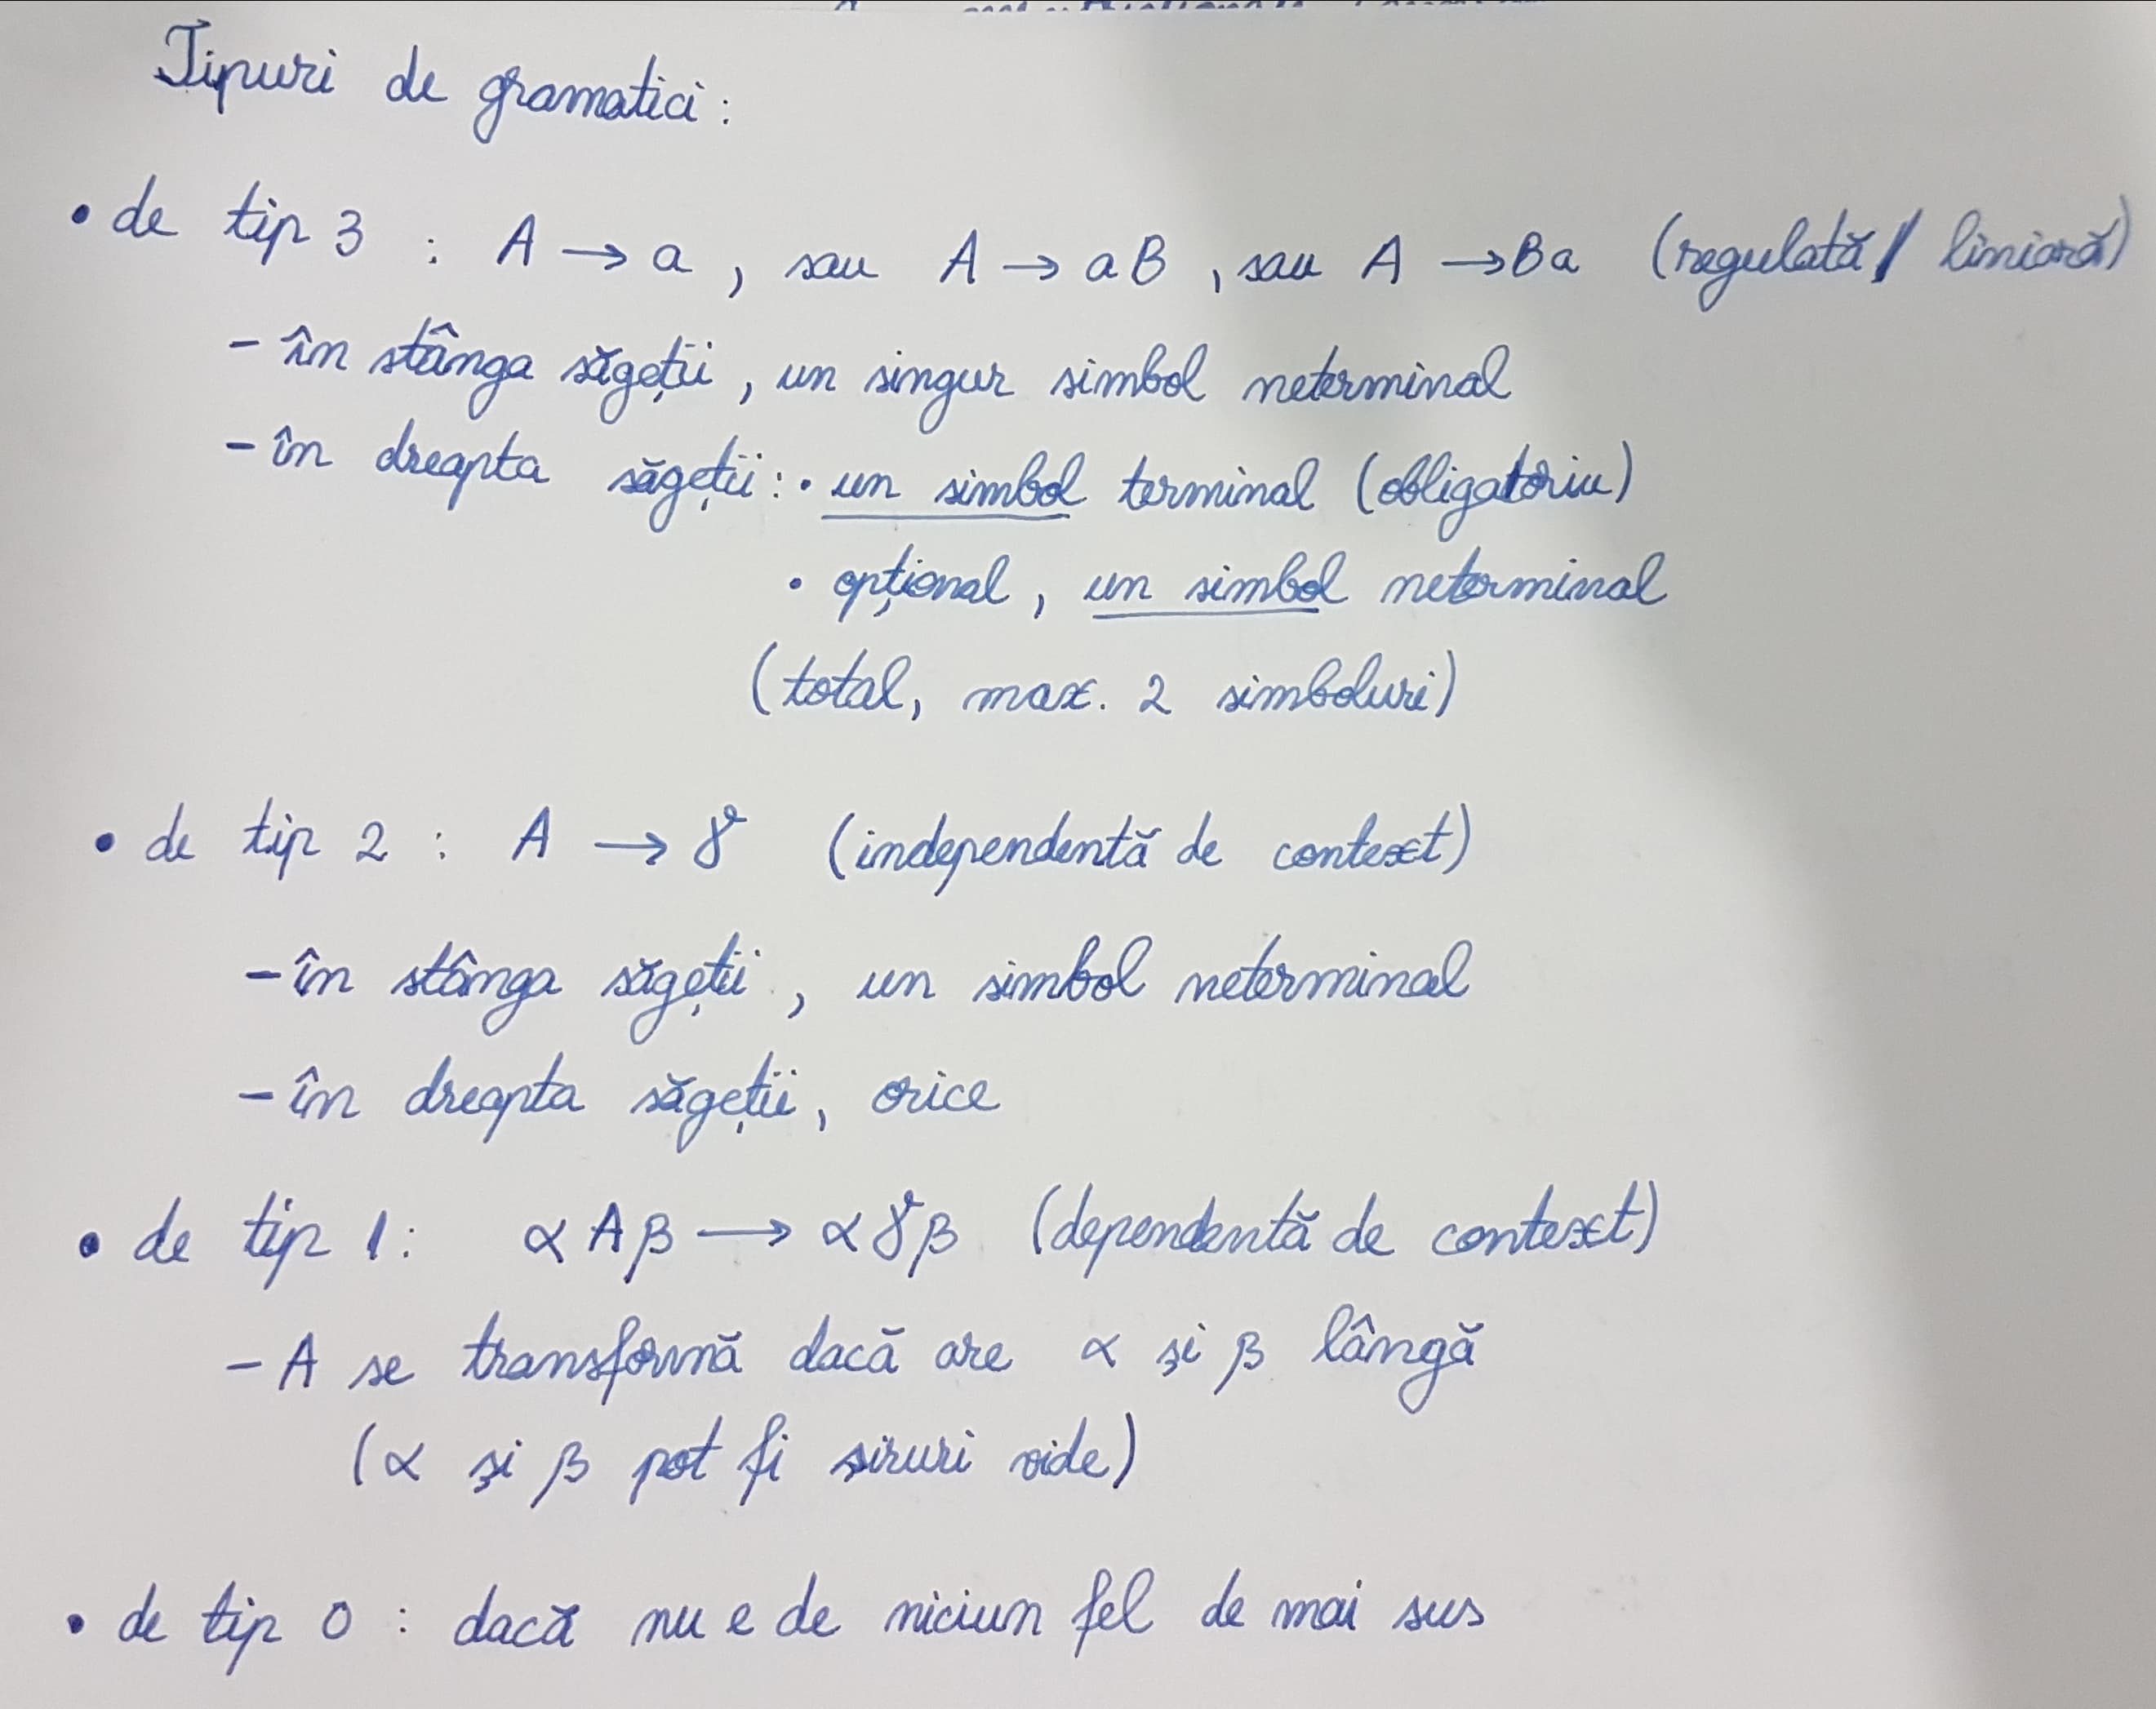 Tipuri de gramatici:
• de tip 3 : A → a , sau A → aB , sau A → Ba (regulată / liniară)
- în stânga săgeții , un singur simbol neterminal
- în dreapta săgeții : • un simbol terminal (obligatoriu)
• opțional , un simbol neterminal
(total, max. 2 simboluri)
• de tip 2 : A → γ (independentă de context)
- în stânga săgeții , un simbol neterminal
- în dreapta săgeții, orice
• de tip 1 : αAβ → αγβ (dependentă de context)
- A se transformă dacă are α și β lângă
(α și β pot fi șiruri vide)
• de tip 0 : dacă nu e de niciun fel de mai sus